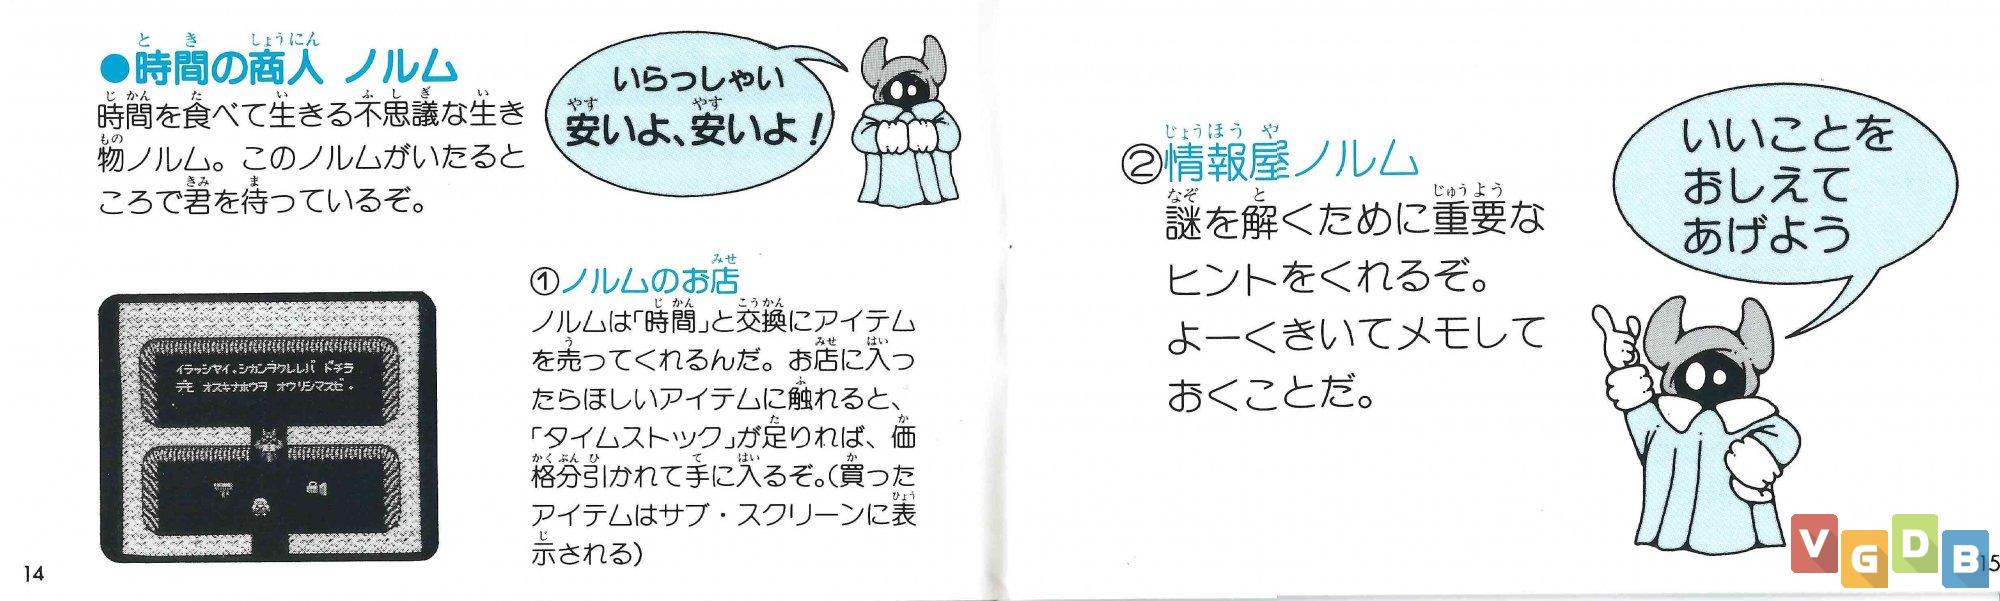 ●時間の商人 ノルム
時間を食べて生きる不思議な生き
物ノルム。このノルムがいたると
ころで君を待っているぞ。
いらっしゃい
安いよ、安いよ!
イラッシャイ。ジカンヲクレレバ ドチラ
デモ オスキナホウヲ オウリシマスゼ。
①ノルムのお店
ノルムは「時間」と交換にアイテム
を売ってくれるんだ。お店に入っ
たらほしいアイテムに触れると、
「タイムストック」が足りれば、価
格分引かれて手に入るぞ。(買った
アイテムはサブ・スクリーンに表
示される)
14
②情報屋ノルム
謎を解くために重要な
ヒントをくれるぞ。
よーくきいてメモして
おくことだ。
いいことを
おしえて
あげよう
VGDB
15